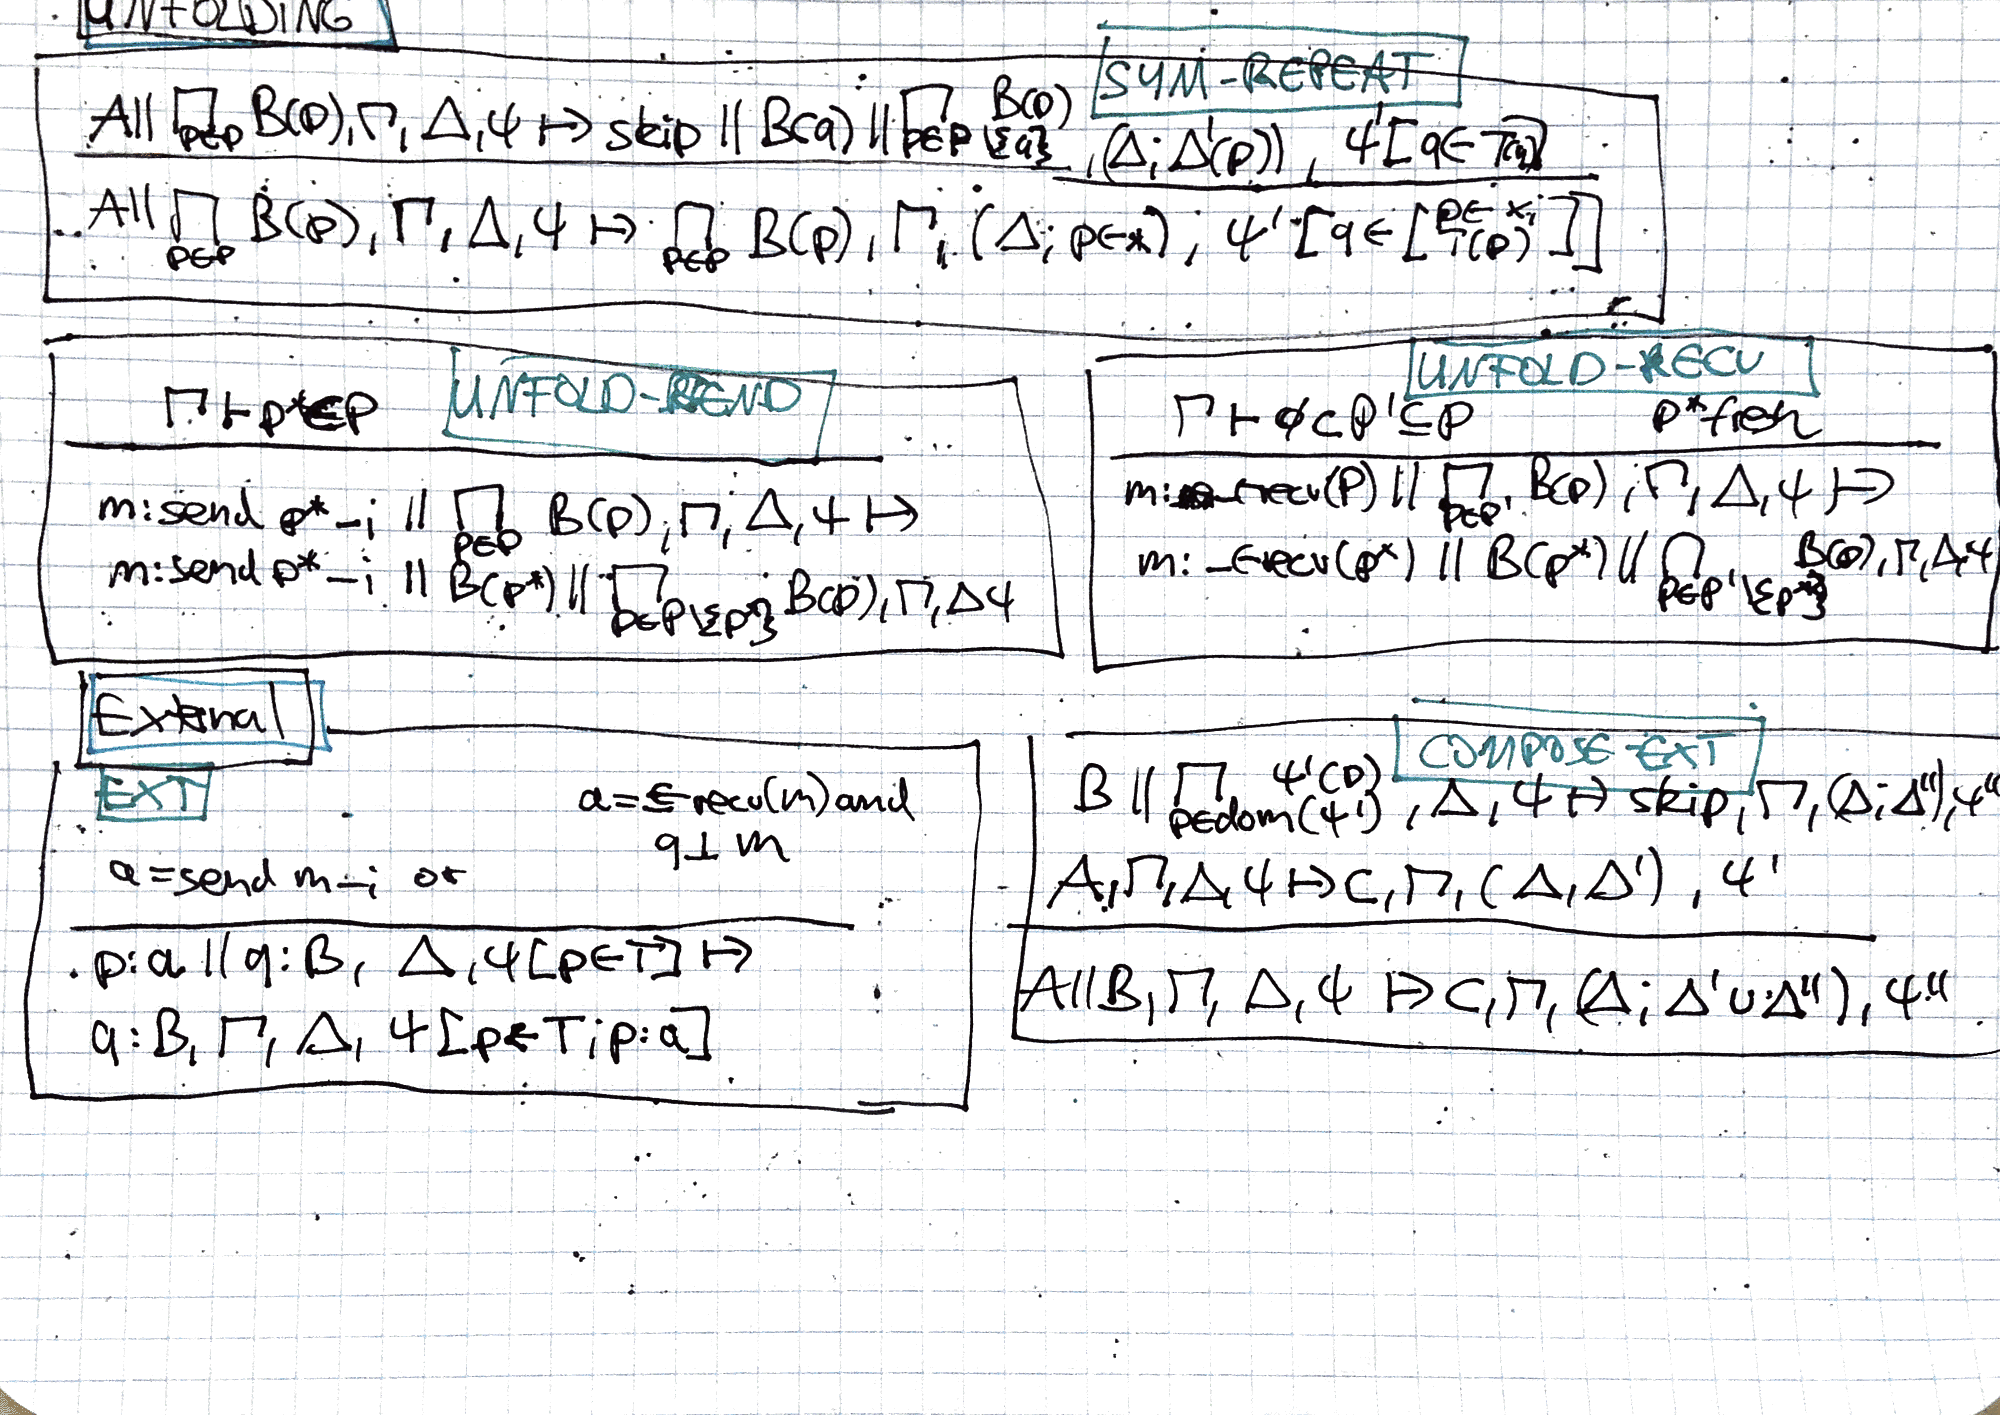 UNFOLDING
SYM-REPEAT
A || ∏ p∈P B(p), Γ, Δ, Ψ ↦ skip || B(q) || ∏ p∈P\{q} B(p), (Δ; Δ'(p)), Ψ'[q∈T(q)]
A || ∏ p∈P B(p), Γ, Δ, Ψ ↦ ∏ p∈P B(p), Γ, (Δ; p∈*), Ψ'[q∈[p∈x; T(p)]]
UNFOLD-SEND
Γ ⊢ p*∈P
m:send p* _i || ∏ p∈P B(p), Γ, Δ, Ψ ↦
m:send p* _i || B(p*) || ∏ p∈P\{p*} B(p), Γ, Δ Ψ
UNFOLD-RECV
Γ ⊢ ∅⊂P'⊆P p* fresh
m: _←recv(P) || ∏ p∈P' B(p), Γ, Δ, Ψ ↦
m: _←recv(p*) || B(p*) || ∏ p∈P'\{p*} B(p), Γ, Δ, Ψ
External
EXT
a=_←recv(m) and
q⊥m
a=send m _i or
p:a || q:B, Δ, Ψ[p∈T] ↦
q:B, Γ, Δ, Ψ[p∈T; p:a]
COMPOSE-EXT
B || ∏ p∈dom(Ψ') Ψ'(p), Δ, Ψ ↦ skip, Γ, (Δ; Δ''), Ψ''
A, Γ, Δ, Ψ ↦ C, Γ, (Δ, Δ'), Ψ'
A||B, Γ, Δ, Ψ ↦ C, Γ, (Δ; Δ'∪Δ''), Ψ''